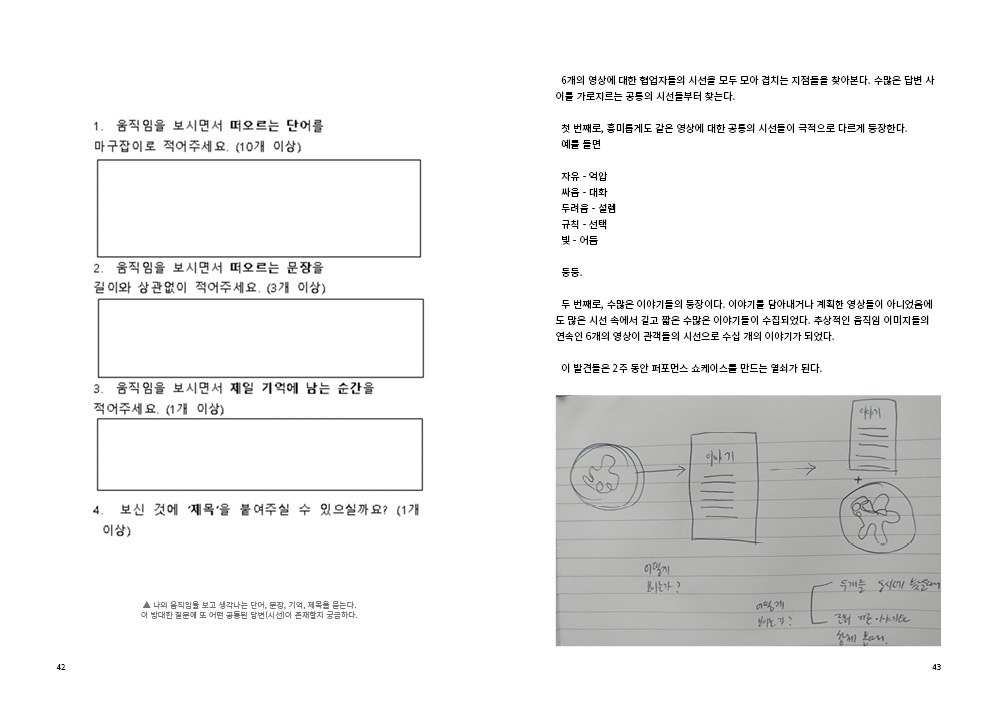 1. 움직임을 보시면서 떠오르는 단어를
마구잡이로 적어주세요. (10개 이상)
2. 움직임을 보시면서 떠오르는 문장을
길이와 상관없이 적어주세요. (3개 이상)
3. 움직임을 보시면서 제일 기억에 남는 순간을
적어주세요. (1개 이상)
4. 보신 것에 '제목'을 붙여주실 수 있으실까요? (1개
이상)
▲ 나의 움직임을 보고 생각나는 단어, 문장, 기억, 제목을 묻는다.
이 방대한 질문에 또 어떤 공통된 답변(시선)이 존재할지 궁금하다.
42
6개의 영상에 대한 협업자들의 시선을 모두 모아 겹치는 지점들을 찾아본다. 수많은 답변 사
이를 가로지르는 공통의 시선들부터 찾는다.
첫 번째로, 흥미롭게도 같은 영상에 대한 공통의 시선들이 극적으로 다르게 등장한다.
예를 들면
자유 - 억압
싸움 - 대화
두려움 - 설렘
규칙 - 선택
빛 - 어둠
등등.
두 번째로, 수많은 이야기들의 등장이다. 이야기를 담아내거나 계획한 영상들이 아니었음에
도 많은 시선 속에서 길고 짧은 수많은 이야기들이 수집되었다. 추상적인 움직임 이미지들의
연속인 6개의 영상이 관객들의 시선으로 수십 개의 이야기가 되었다.
이 발견들은 2주 동안 퍼포먼스 쇼케이스를 만드는 열쇠가 된다.
이야기
이야기
+
어떻게
보이는가?
어떻게
보이는가?
두개를 동시에
함께 볼때.
43